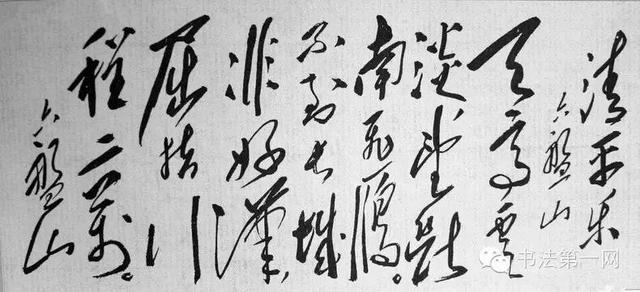 清平乐
六盤山
天高雲
淡望断
南飞雁。
不到长城
非好漢,
屈指行
程二萬。
六盤山
书法第一网